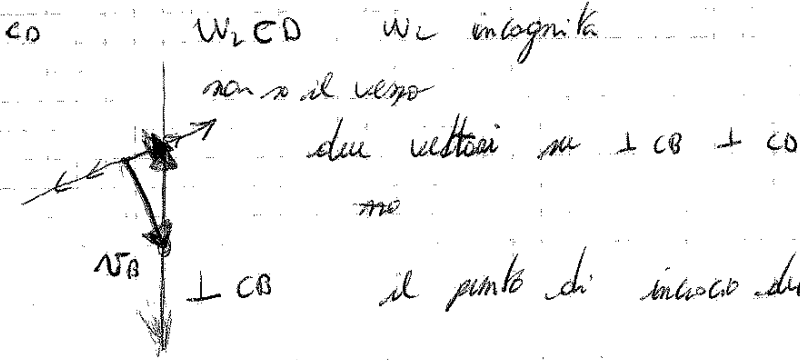 CD W₂ CD W₂ incognita
non so il verso
due vettori su ⊥ CB ⊥ CD
no
VB
⊥ CB il punto di incrocio du